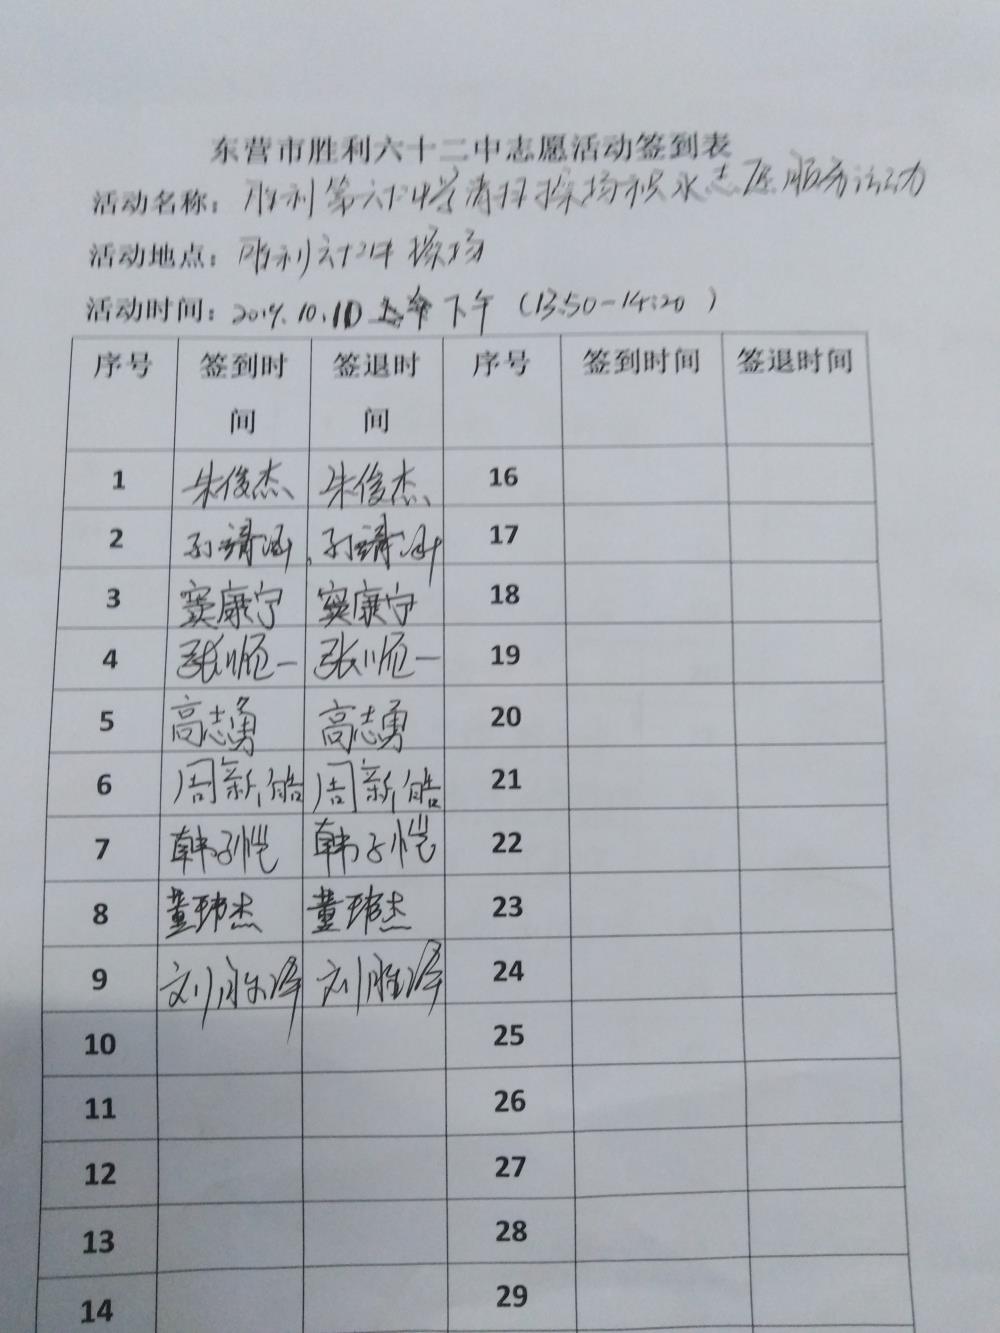 东营市胜利六十二中志愿活动签到表
活动名称：胜利第六十二中学清扫操场积水志愿服务活动
活动地点：胜利六十二中操场
活动时间：2019.10.10 下午（13:50-14:20）
序号 签到时间 签退时间 序号 签到时间 签退时间
1 朱俊杰 朱俊杰 16
2 孙靖涵 孙靖涵 17
3 窦康宁 窦康宁 18
4 张顺一 张顺一 19
5 高志勇 高志勇 20
6 周新皓 周新皓 21
7 韩子恺 韩子恺 22
8 董玮杰 董玮杰 23
9 刘胜泽 刘胜泽 24
10 25
11 26
12 27
13 28
14 29